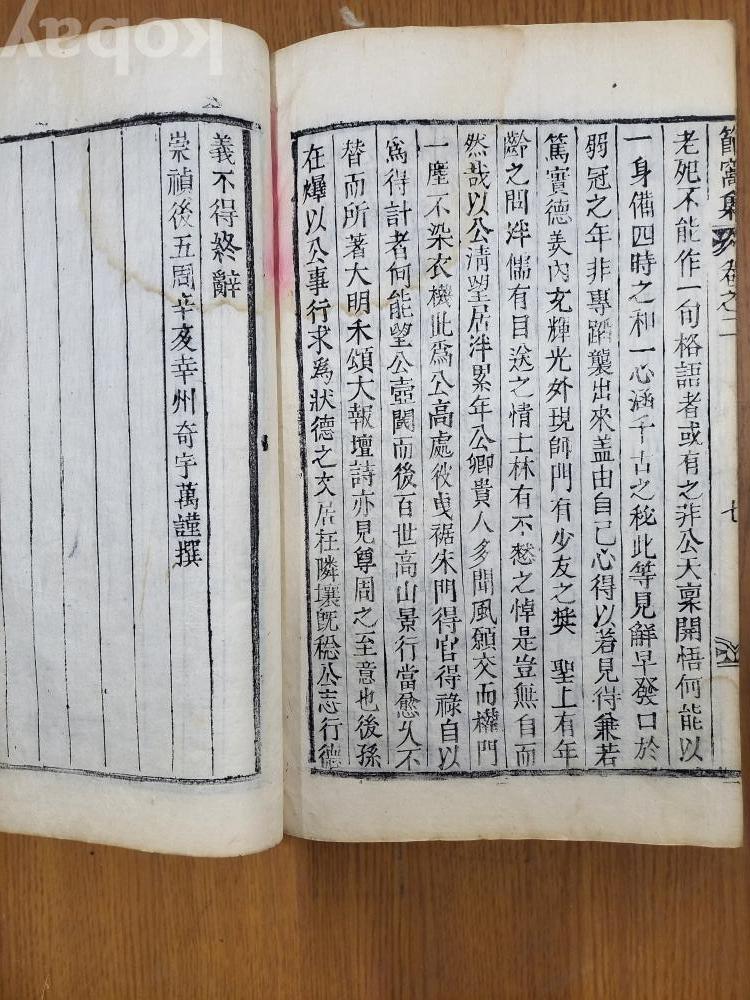 kobay
節窩集 卷之二
七
老死不能作一句格語者或有之非公天稟開悟何能以
一身備四時之和一心涵千古之秘此等見解早發口於
弱冠之年非專蹈襲出來盖由自己心得以着見得兼若
篤實德美內充輝光外現師門有少友之奬 聖上有年
齡之問泮儒有目送之情士林有不憗之悼是豈無自而
然哉以公淸望居泮累年公卿貴人多聞風願交而權門
一塵不染衣機此爲公高處彼曳裾朱門得官得祿自以
爲得計者何能望公壼閾而後百世高山景行當愈久不
替而所著大明禾頌大報壇詩亦見尊周之至意也後孫
在爀以公事行求爲狀德之文居在隣壤旣稔公志行德
義不得終辭
崇禎後五周辛亥幸州奇宇萬謹撰